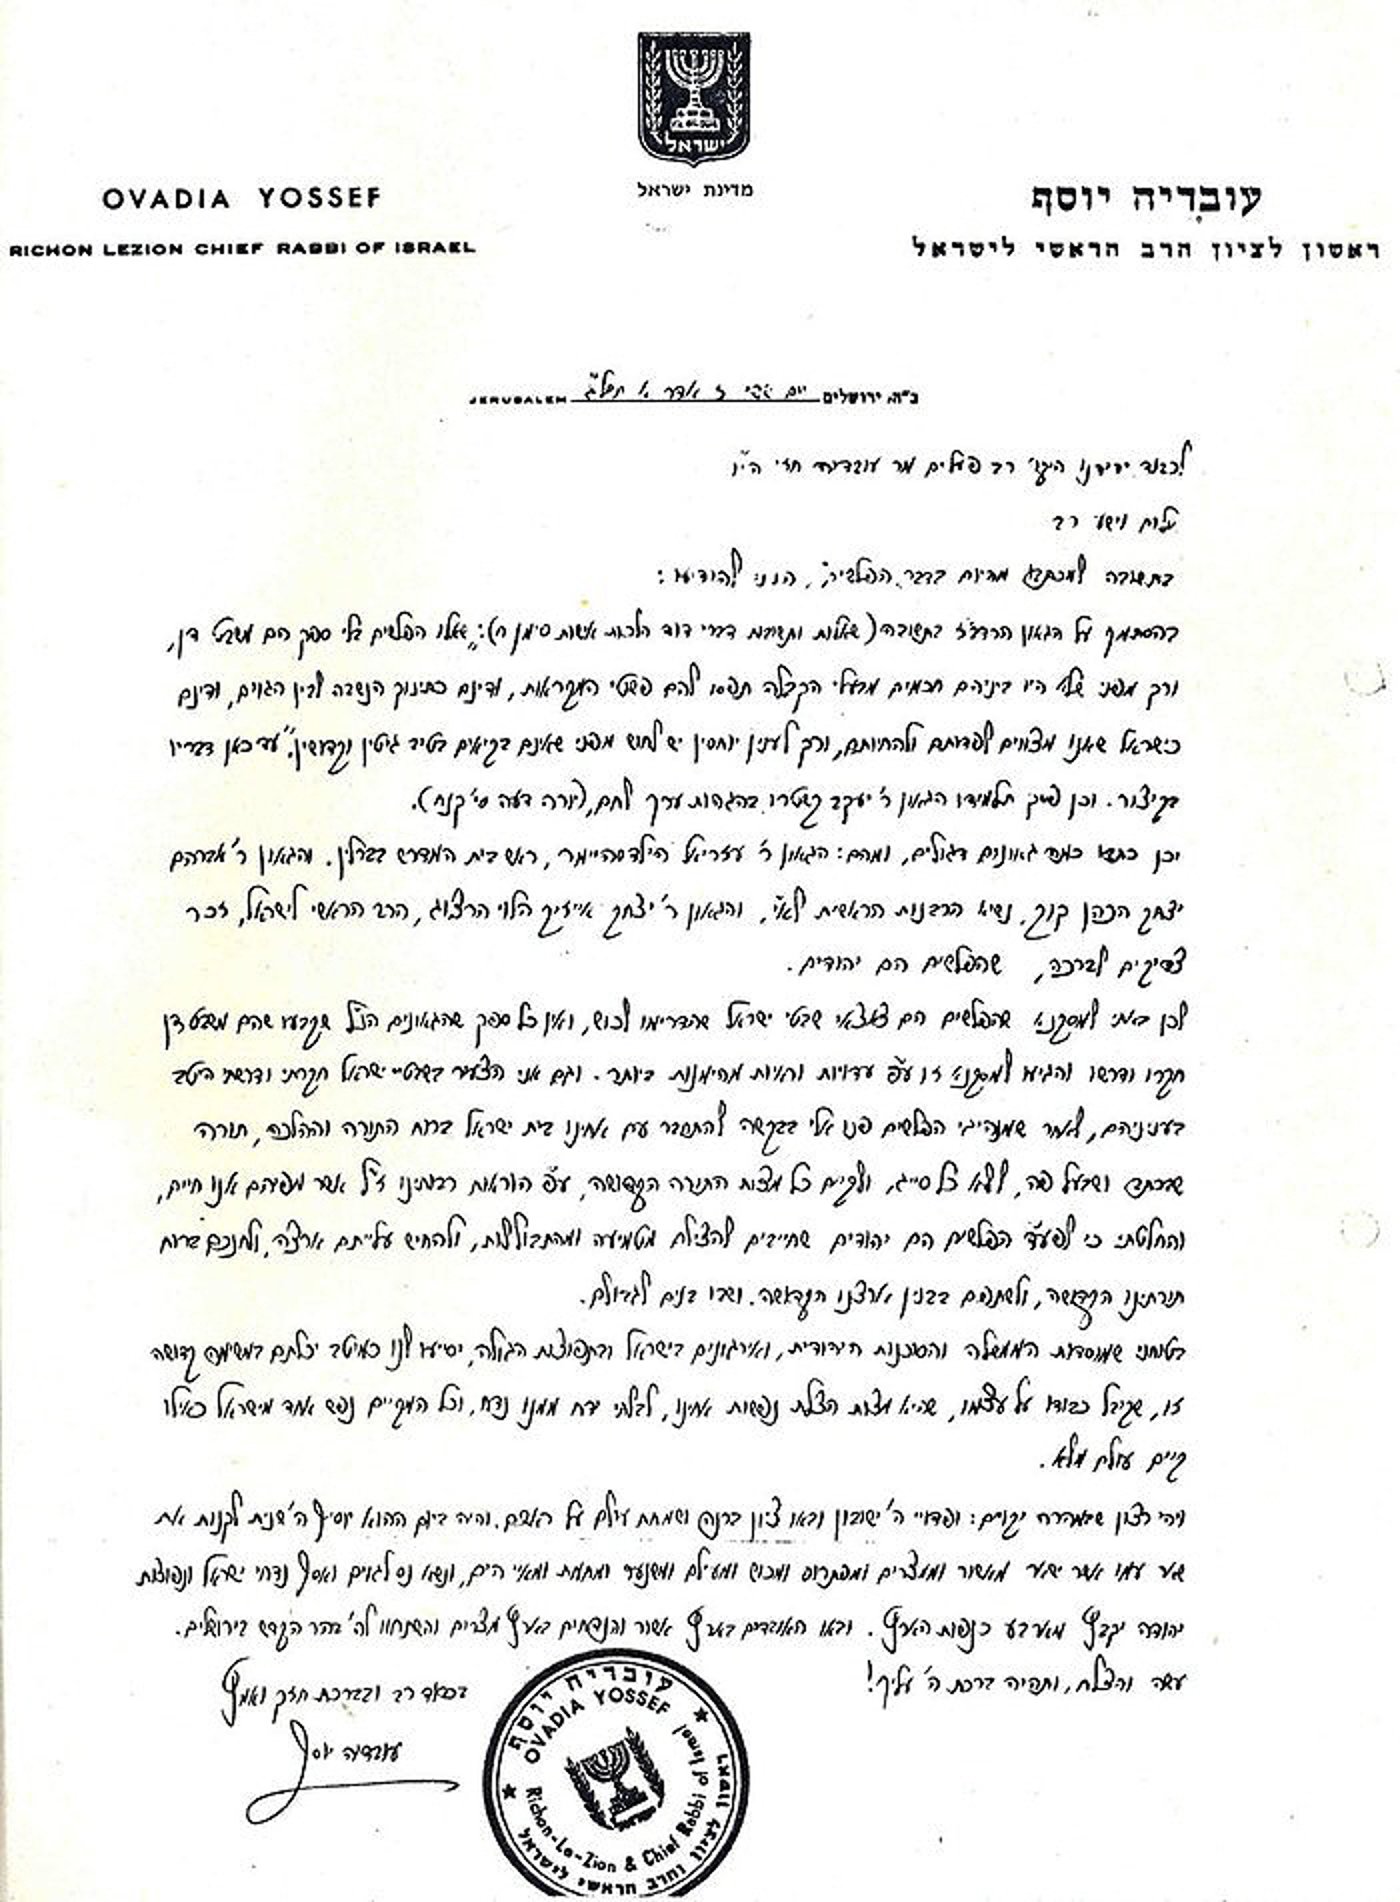 ישראל
מדינת ישראל
OVADIA YOSSEF
עובדיה יוסף
RICHON LEZION CHIEF RABBI OF ISRAEL
ראשון לציון הרב הראשי לישראל
JERUSALEM יום שני ז אדר א תשל"ג ב"ה, ירושלים
לכבוד ידידנו היקר רב פעלים מר עובדיה חזי הי"ו
שלום וישע רב
בתשובה למכתבו מהיום בדבר הפלשים, הנני להודיעו:
בהסתמך על הגאון הרדב"ז בתשובה (שאלות ותשובות דברי דוד הלכות אישות סימן ה): "שאלו הפלשים בלי ספק הם משבט דן,
ורק מפני שלא היו ביניהם חכמים מבעלי הקבלה תפסו להם פשטי המקראות, ודינם כתינוק הנשבה לבין הגוים, ודינם
כישראל שאנו מצווים לפדותם ולהחיותם, ורק לענין יוחסין יש לחוש מפני שאינם בקיאים בטיב גיטין וקדושין". עד כאן דבריו
בקיצור. וכן פסק תלמידו הגאון ר' יעקב קשטרו בהגהות ערך לחם, (יורה דעה סי' קנח).
וכן כתבו כמה גאונים דגולים, ומהם: הגאון ר' עזריאל הילדסהיימר, ראש בית המדרש בברלין. והגאון ר' אברהם
יצחק הכהן קוק, נשיא הרבנות הראשית לא"י, והגאון ר' יצחק אייזיק הלוי הרצוג, הרב הראשי לישראל, זכר
צדיקים לברכה, שהפלשים הם יהודים.
לכן באתי למסקנא שהפלשים הם צאצאי שבטי ישראל שהדרימו לכוש, ואין כל ספק שהגאונים הנ"ל שקבעו שהם משבט דן
חקרו ודרשו והגיעו למסקנא זו ע"פ עדויות וראיות מהימנות ביותר. וגם אני הצעיר בשבטי ישראל חקרתי ודרשתי היטב
בעניניהם, לאחר שמנהיגי הפלשים פנו אלי בבקשה להתחבר עם אחינו בית ישראל ברוח התורה וההלכה, תורה
שבכתב ושבעל פה, ללא כל סייג, ולקיים כל מצות התורה הקדושה, ע"פ הוראות רבותינו ז"ל אשר מפיהם אנו חיים,
והחלטתי כי לפע"ד הפלשים הם יהודים שחייבים להצילם מטמיעה ומהתבוללות, ולהחיש עלייתם ארצה, ולחנכם ברוח
תורתינו הקדושה, ולשתפם בבנין ארצנו הקדושה. ושבו בנים לגבולם.
בטוחני שמוסדות הממשלה והסוכנות היהודית, ואירגונים בישראל ובתפוצות הגולה, יסייעו לנו כמיטב יכלתם במשימה קדושה
זו, שקיבל כבודו על עצמו, שהיא מצות הצלת נפשות אחינו, לבלתי ידח ממנו נדח, וכל המקיים נפש אחד מישראל כאילו
קיים עולם מלא.
ויהי רצון שבמהרה יקויים: ופדויי ה' ישובון ובאו ציון ברנה ושמחת עולם על ראשם. והיה ביום ההוא יוסיף ה' שנית לקנות את
שאר עמו אשר ישאר מאשור וממצרים ומפתרוס ומכוש ומעילם ומשנער ומחמת ומאיי הים, ונשא נס לגוים ואסף נדחי ישראל ונפוצות
יהודה יקבץ מארבע כנפות הארץ. ובאו האובדים בארץ אשור והנדחים בארץ מצרים והשתחוו לה' בהר הקדש בירושלים.
עשה והצלח, ותהיה ברכת ה' עליך!
בכבוד רב ובברכת חזק ואמץ
עובדיה יוסף
עובדיה יוסף
OVADIA YOSSEF
Richon-Le-Zion & Chief Rabbi of Israel
ראשון לציון והרב הראשי לישראל